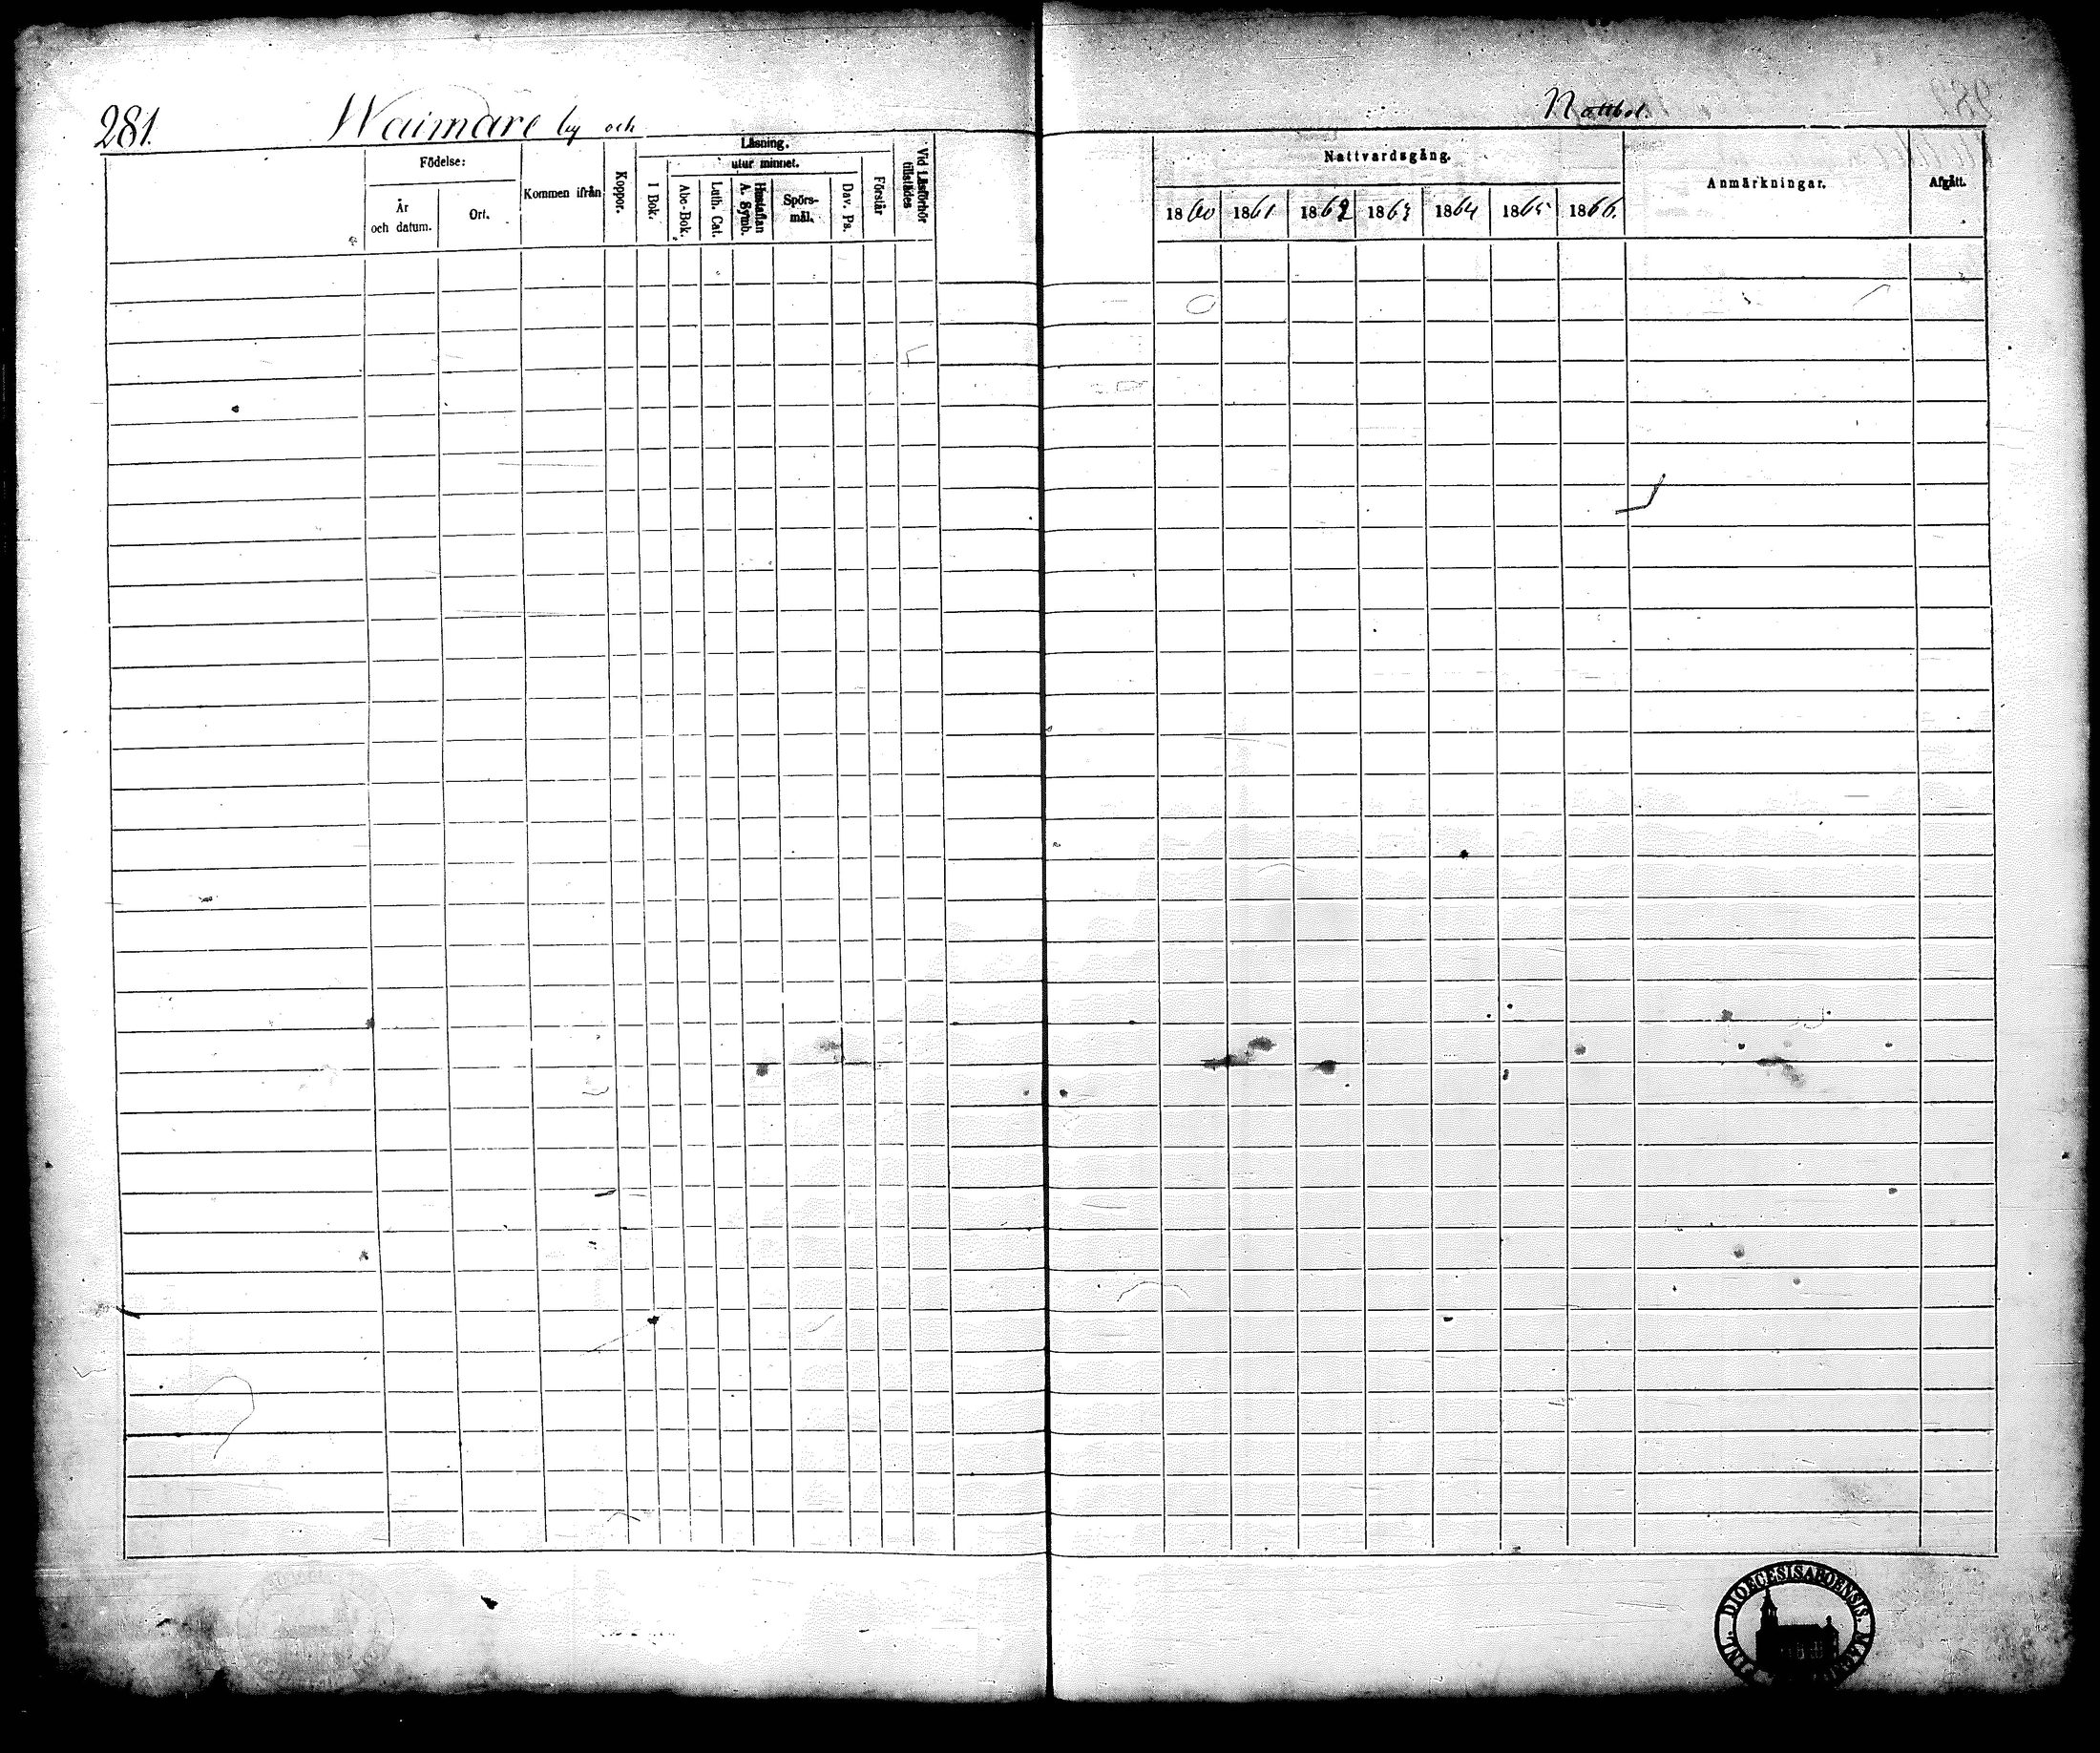 281. Waimare by och
Nattbol.
Födelse:
År och datum.
Ort.
Kommen ifrån
Koppor.
Läsning.
I Bok.
utur minnet.
Abc-Bok.
Luth. Cat.
Hustaflan A. Symb.
Spörs-mål.
Dav. Ps.
Förstår
Vid Läsförhör tillstädes
Nattvardsgång.
1860 1861 1862 1863 1864 1865 1866.
Anmärkningar.
Afgått.
DIOECESIS ABOENSIS.